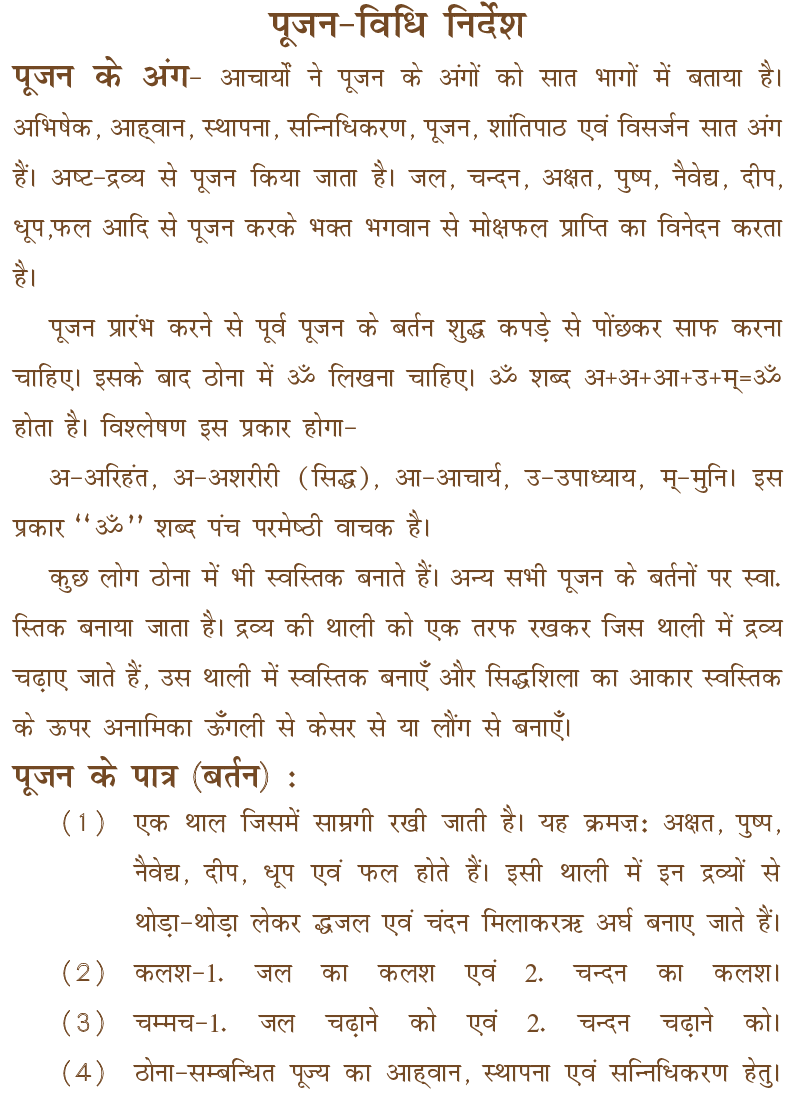 पूजन-विधि निर्देश
पूजन के अंग- आचार्यों ने पूजन के अंगों को सात भागों में बताया है।
अभिषेक, आह्वान, स्थापना, सन्निधिकरण, पूजन, शांतिपाठ एवं विसर्जन सात अंग
हैं। अष्ट-द्रव्य से पूजन किया जाता है। जल, चन्दन, अक्षत, पुष्प, नैवेद्य, दीप,
धूप,फल आदि से पूजन करके भक्त भगवान से मोक्षफल प्राप्ति का विनेदन करता
है।
पूजन प्रारंभ करने से पूर्व पूजन के बर्तन शुद्ध कपड़े से पोंछकर साफ करना
चाहिए। इसके बाद ठोना में ॐ लिखना चाहिए। ॐ शब्द अ+अ+आ+उ+म्=ॐ
होता है। विश्लेषण इस प्रकार होगा-
अ-अरिहंत, अ-अशरीरी (सिद्ध), आ-आचार्य, उ-उपाध्याय, म्-मुनि। इस
प्रकार ‘‘ॐ’’ शब्द पंच परमेष्ठी वाचक है।
कुछ लोग ठोना में भी स्वस्तिक बनाते हैं। अन्य सभी पूजन के बर्तनों पर स्वा.
स्तिक बनाया जाता है। द्रव्य की थाली को एक तरफ रखकर जिस थाली में द्रव्य
चढ़ाए जाते हैं, उस थाली में स्वस्तिक बनाएँ और सिद्धशिला का आकार स्वस्तिक
के ऊपर अनामिका ऊँगली से केसर से या लौंग से बनाएँ।
पूजन के पात्र (बर्तन) :
(1) एक थाल जिसमें साम्रगी रखी जाती है। यह क्रमज़: अक्षत, पुष्प,
नैवेद्य, दीप, धूप एवं फल होते हैं। इसी थाली में इन द्रव्यों से
थोड़ा-थोड़ा लेकर द्धजल एवं चंदन मिलाकरऋ अर्घ बनाए जाते हैं।
(2) कलश-1. जल का कलश एवं 2. चन्दन का कलश।
(3) चम्मच-1. जल चढ़ाने को एवं 2. चन्दन चढ़ाने को।
(4) ठोना-सम्बन्धित पूज्य का आह्वान, स्थापना एवं सन्निधिकरण हेतु।